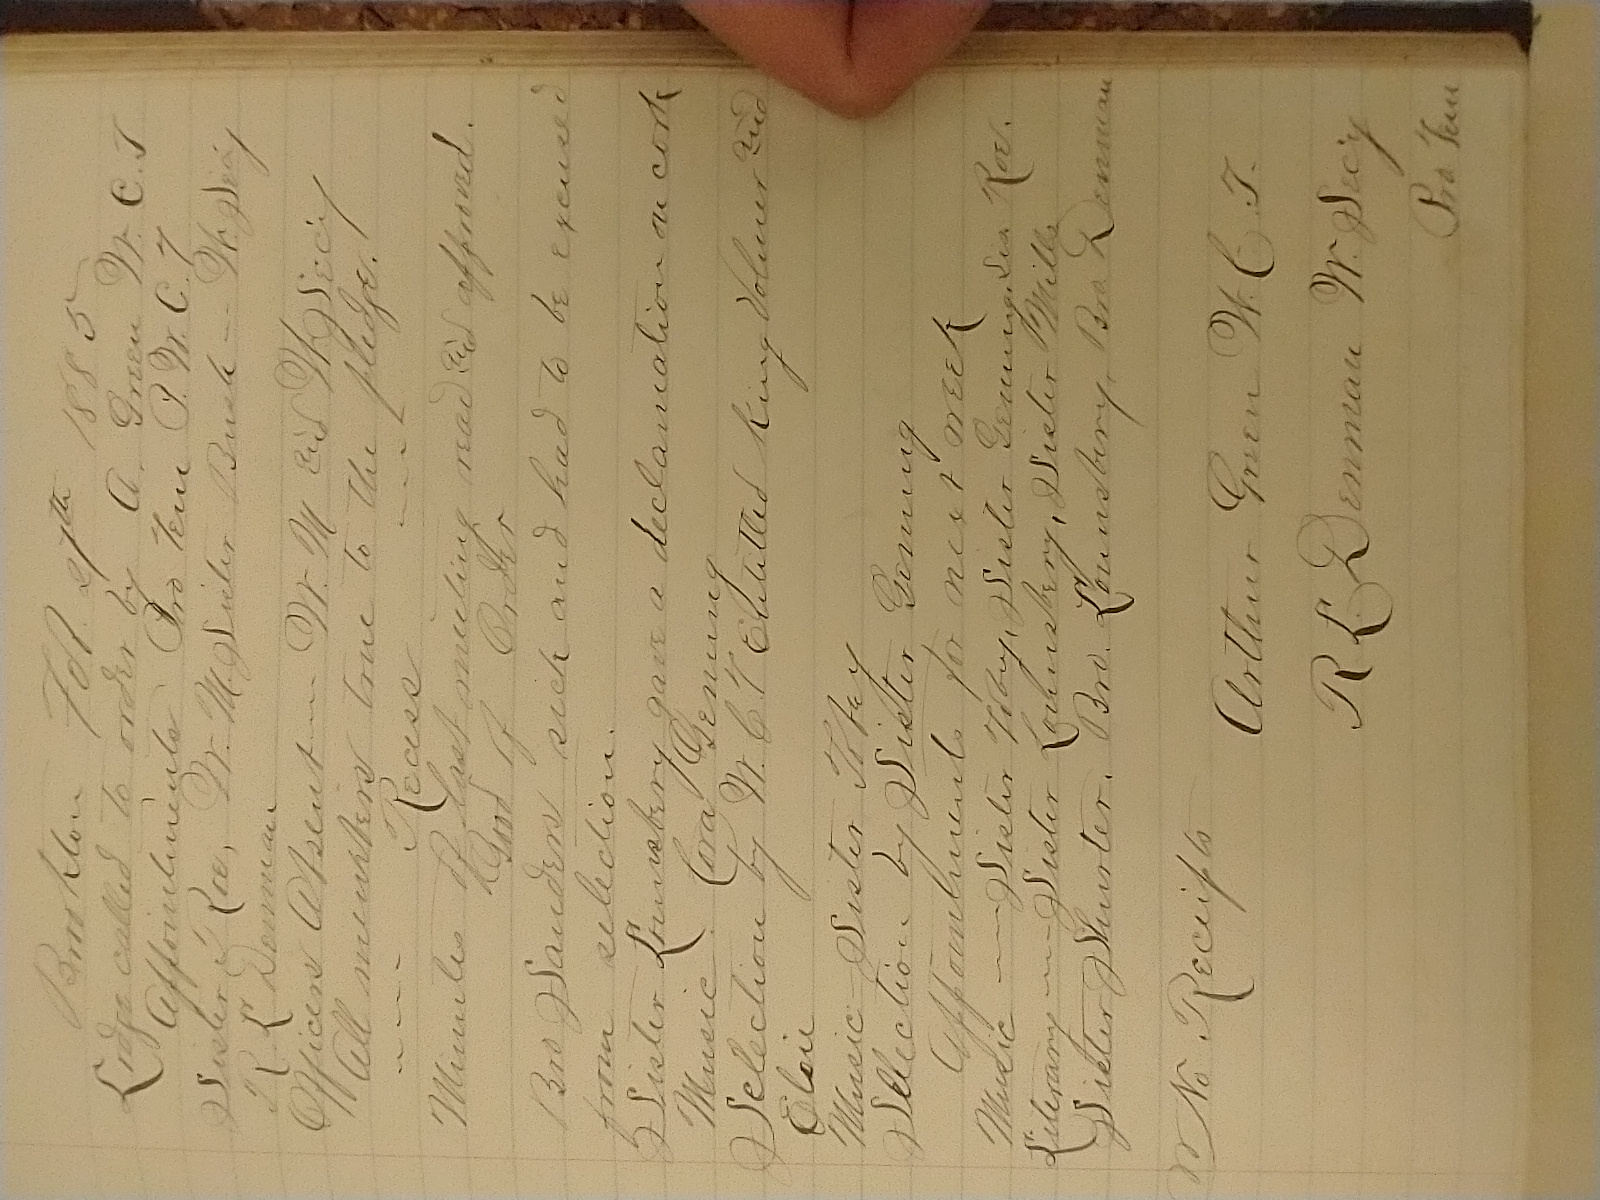 Brookton Feb. 27th 1885
Lodge called to order by A. Green W. C. T
Appointments Pro Tem P. W. C. T
Sister Roe, W. M. Sister Bush — W. Secy
R. L Denman
Officers Absent — W. M and W. Secy
All members true to the pledge.
Recess
Minutes of last meeting read and approved.
Good of Order
Bro Sanders sick and had to be excused
from selection.
Sister Lounsbery gave a declamation on cork
Music. Cora Genung
Selection by W. C. T Entitled King Volmer and
Elsie
Music — Sister Tobey
Selection by Sister Genung
Appointments for next week
Music — Sister Tobey, Sister Genung. Sis. Roe.
Literary — Sister Lounsbery, Sister Mills
Sister Shurter. Bro. Lounsbery, Bro. Denman
No Receipts
Arthur Green W. C. T.
R L. Denman W. Secy
Pro Tem